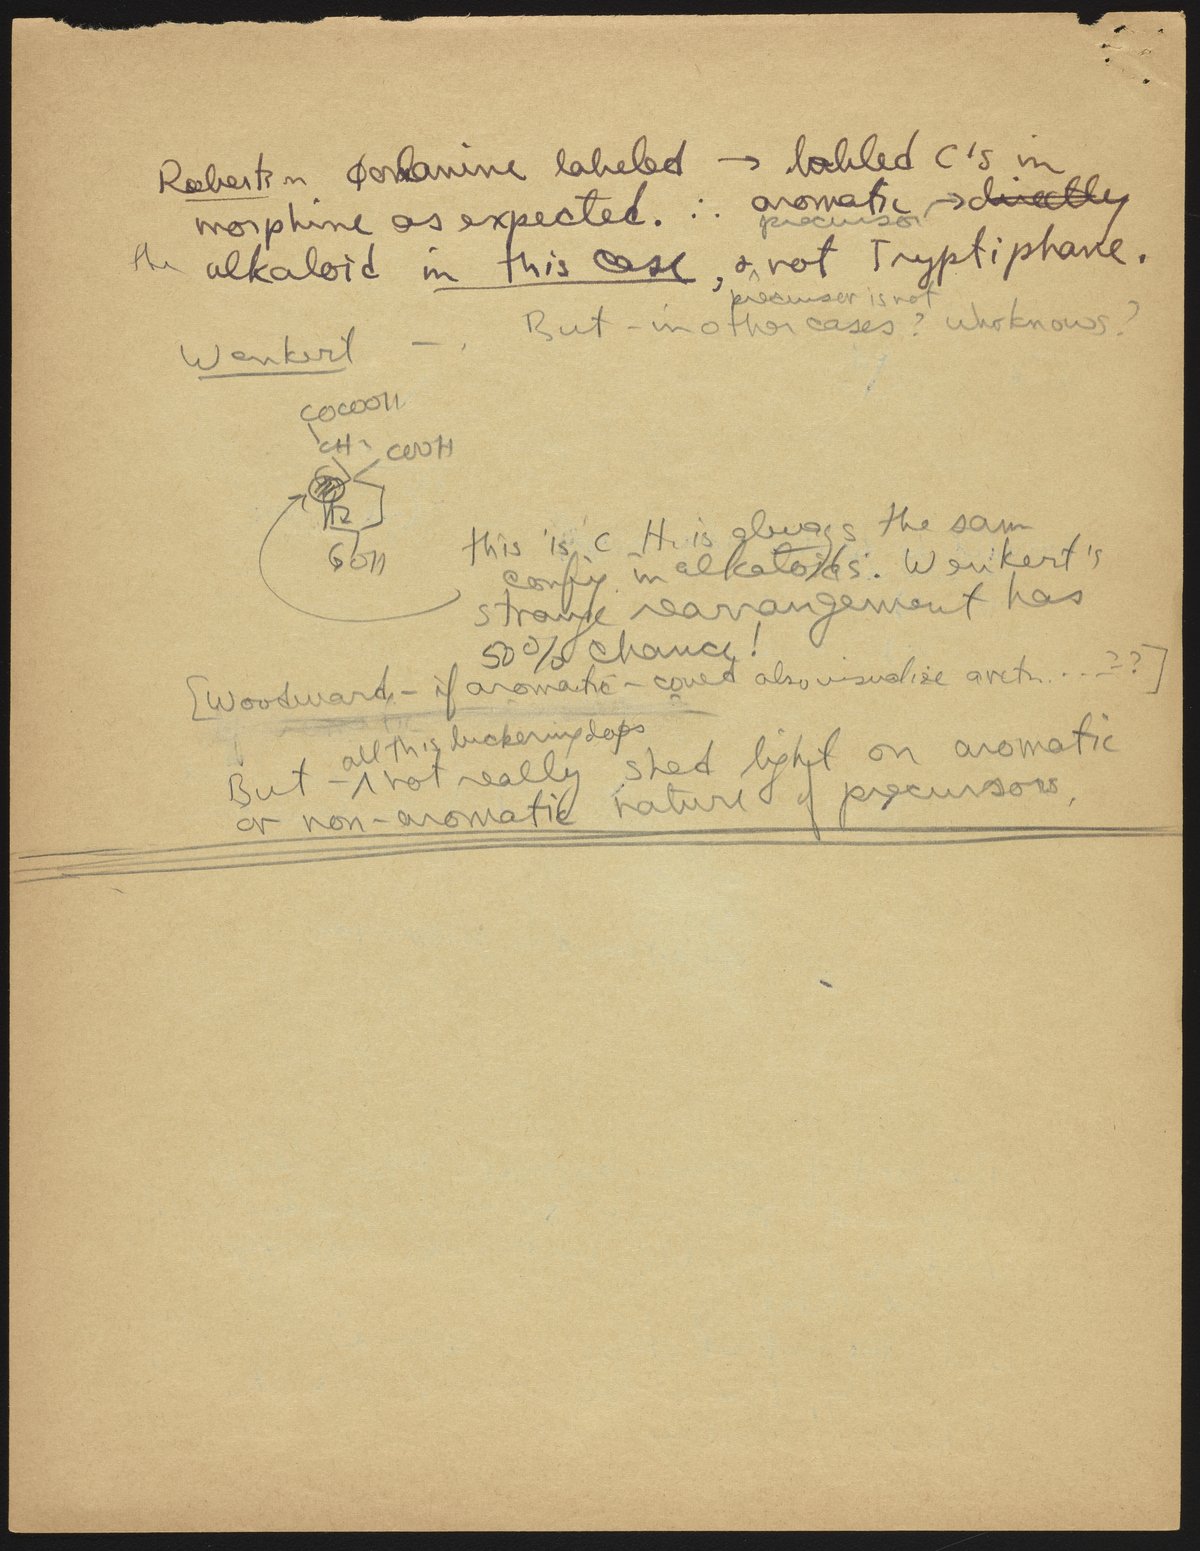 Robertson φalanine labeled → labled C's in
morphine as expected. ∴ aromatic → directly
precursor
the alkaloid in this case, & not Tryptiphane.
precursor is not
But - in other cases? Who knows?
Wenkert —.
COCOOH
CH2 COOH
H2
OH
this is C H. is always the same
config. in alkaloids. Wenkert's
strange rearrangement has
50% chance!
[Woodward - if aromatic - could also visualize a retn....??]
all this bickering does
But - ^ not really shed light on aromatic
or non-aromatic nature of precursors.